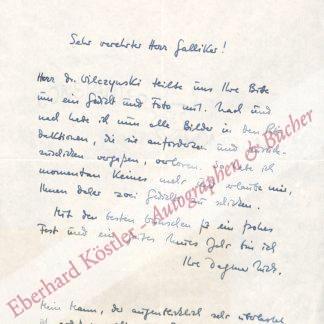 Sehr verehrter Herr Galliker!
Herr Dr. Wilczynski teilte uns Ihre Bitte
um ein Gedicht und Foto mit. Nach und
nach habe ich nun alle Bilder in den
daktionen, die sie anforderten und
zuschicken vergaßen, verloren. habe ich
momentan keines mehr und erlaube mir,
Ihnen daher zwei Gedichte zu schicken.
Mit den besten Wünschen für ein frohes
Fest und ein gutes Neues Jahr bin ich
Ihre Dagmar Nick.
Mein Mann, der augenblicklich sehr überlastet
Eberhard Köstler - Autographen & Bücher